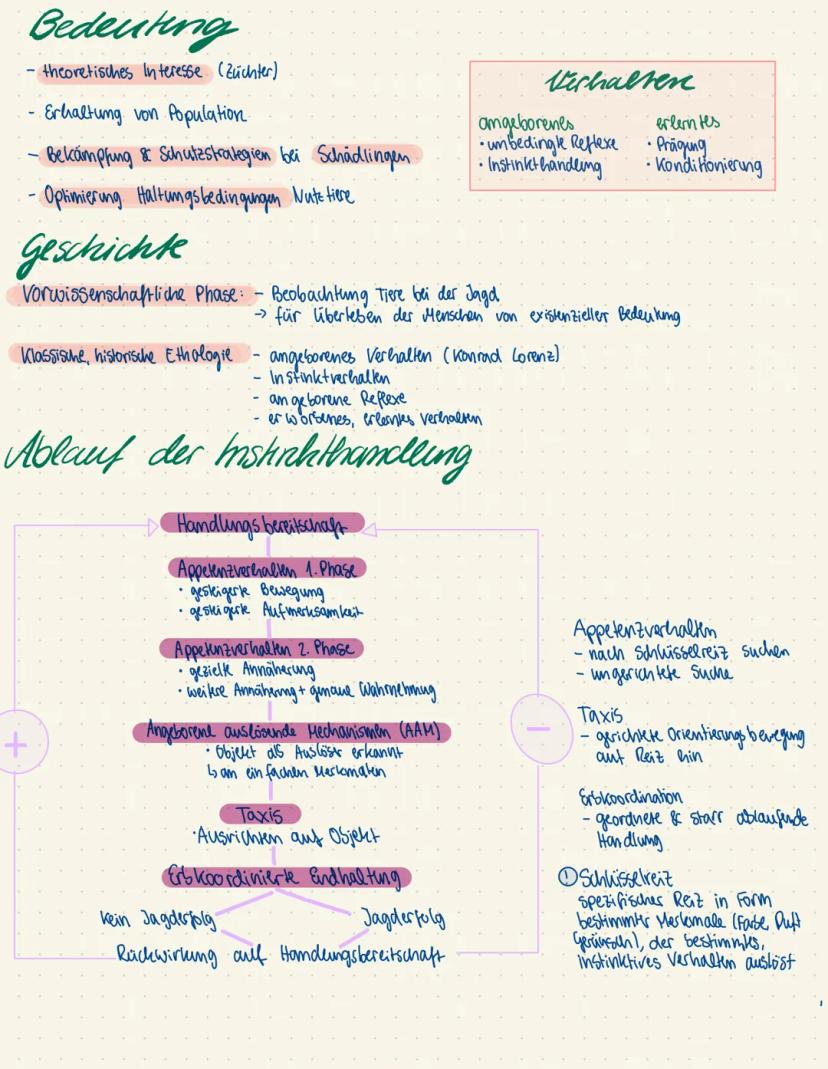 Bedeutung
- theoretisches Interesse (Züchter)
- Erhaltung von Population
- Bekämpfung & Schutzstrategien bei Schädlingen
- Optimierung Haltungsbedingungen Nutztiere
Verhalten
angeborenes
• unbedingte Reflexe
• Instinkthandlung
erlerntes
• Prägung
• Konditionierung
Geschichte
Vorwissenschaftliche Phase: - Beobachtung Tiere bei der Jagd
→ für Überleben der Menschen von existenzieller Bedeutung
Klassische, historische Ethologie - angeborenes Verhalten (Konrad Lorenz)
- Instinktverhalten
- angeborene Reflexe
- erworbenes, erlerntes Verhalten
Ablauf der Instinkthandlung
Handlungsbereitschaft
Appetenzverhalten 1. Phase
• gesteigerte Bewegung
• gesteigerte Aufmerksamkeit
Appetenzverhalten 2. Phase
• gezielte Annäherung
• weitere Annäherung + genaue Wahrnehmung
Angeborene auslösende Mechanismen (AAM)
• Objekt als Auslöser erkannt
↳ an einfachen Merkmalen
Taxis
• Ausrichten auf Objekt
Erbkoordinierte Endhaltung
Kein Jagderfolg
Jagderfolg
Rückwirkung auf Handlungsbereitschaft
+
-
Appetenzverhalten
- nach Schlüsselreiz suchen
- ungerichtete Suche
Taxis
- gerichtete Orientierungsbewegung
auf Reiz hin
Erbkoordination
- geordnete & starr ablaufende
Handlung
! Schlüsselreiz
spezifischer Reiz in Form
bestimmter Merkmale (Farbe, Duft
Geräusch), der bestimmtes,
instinktives Verhalten auslöst